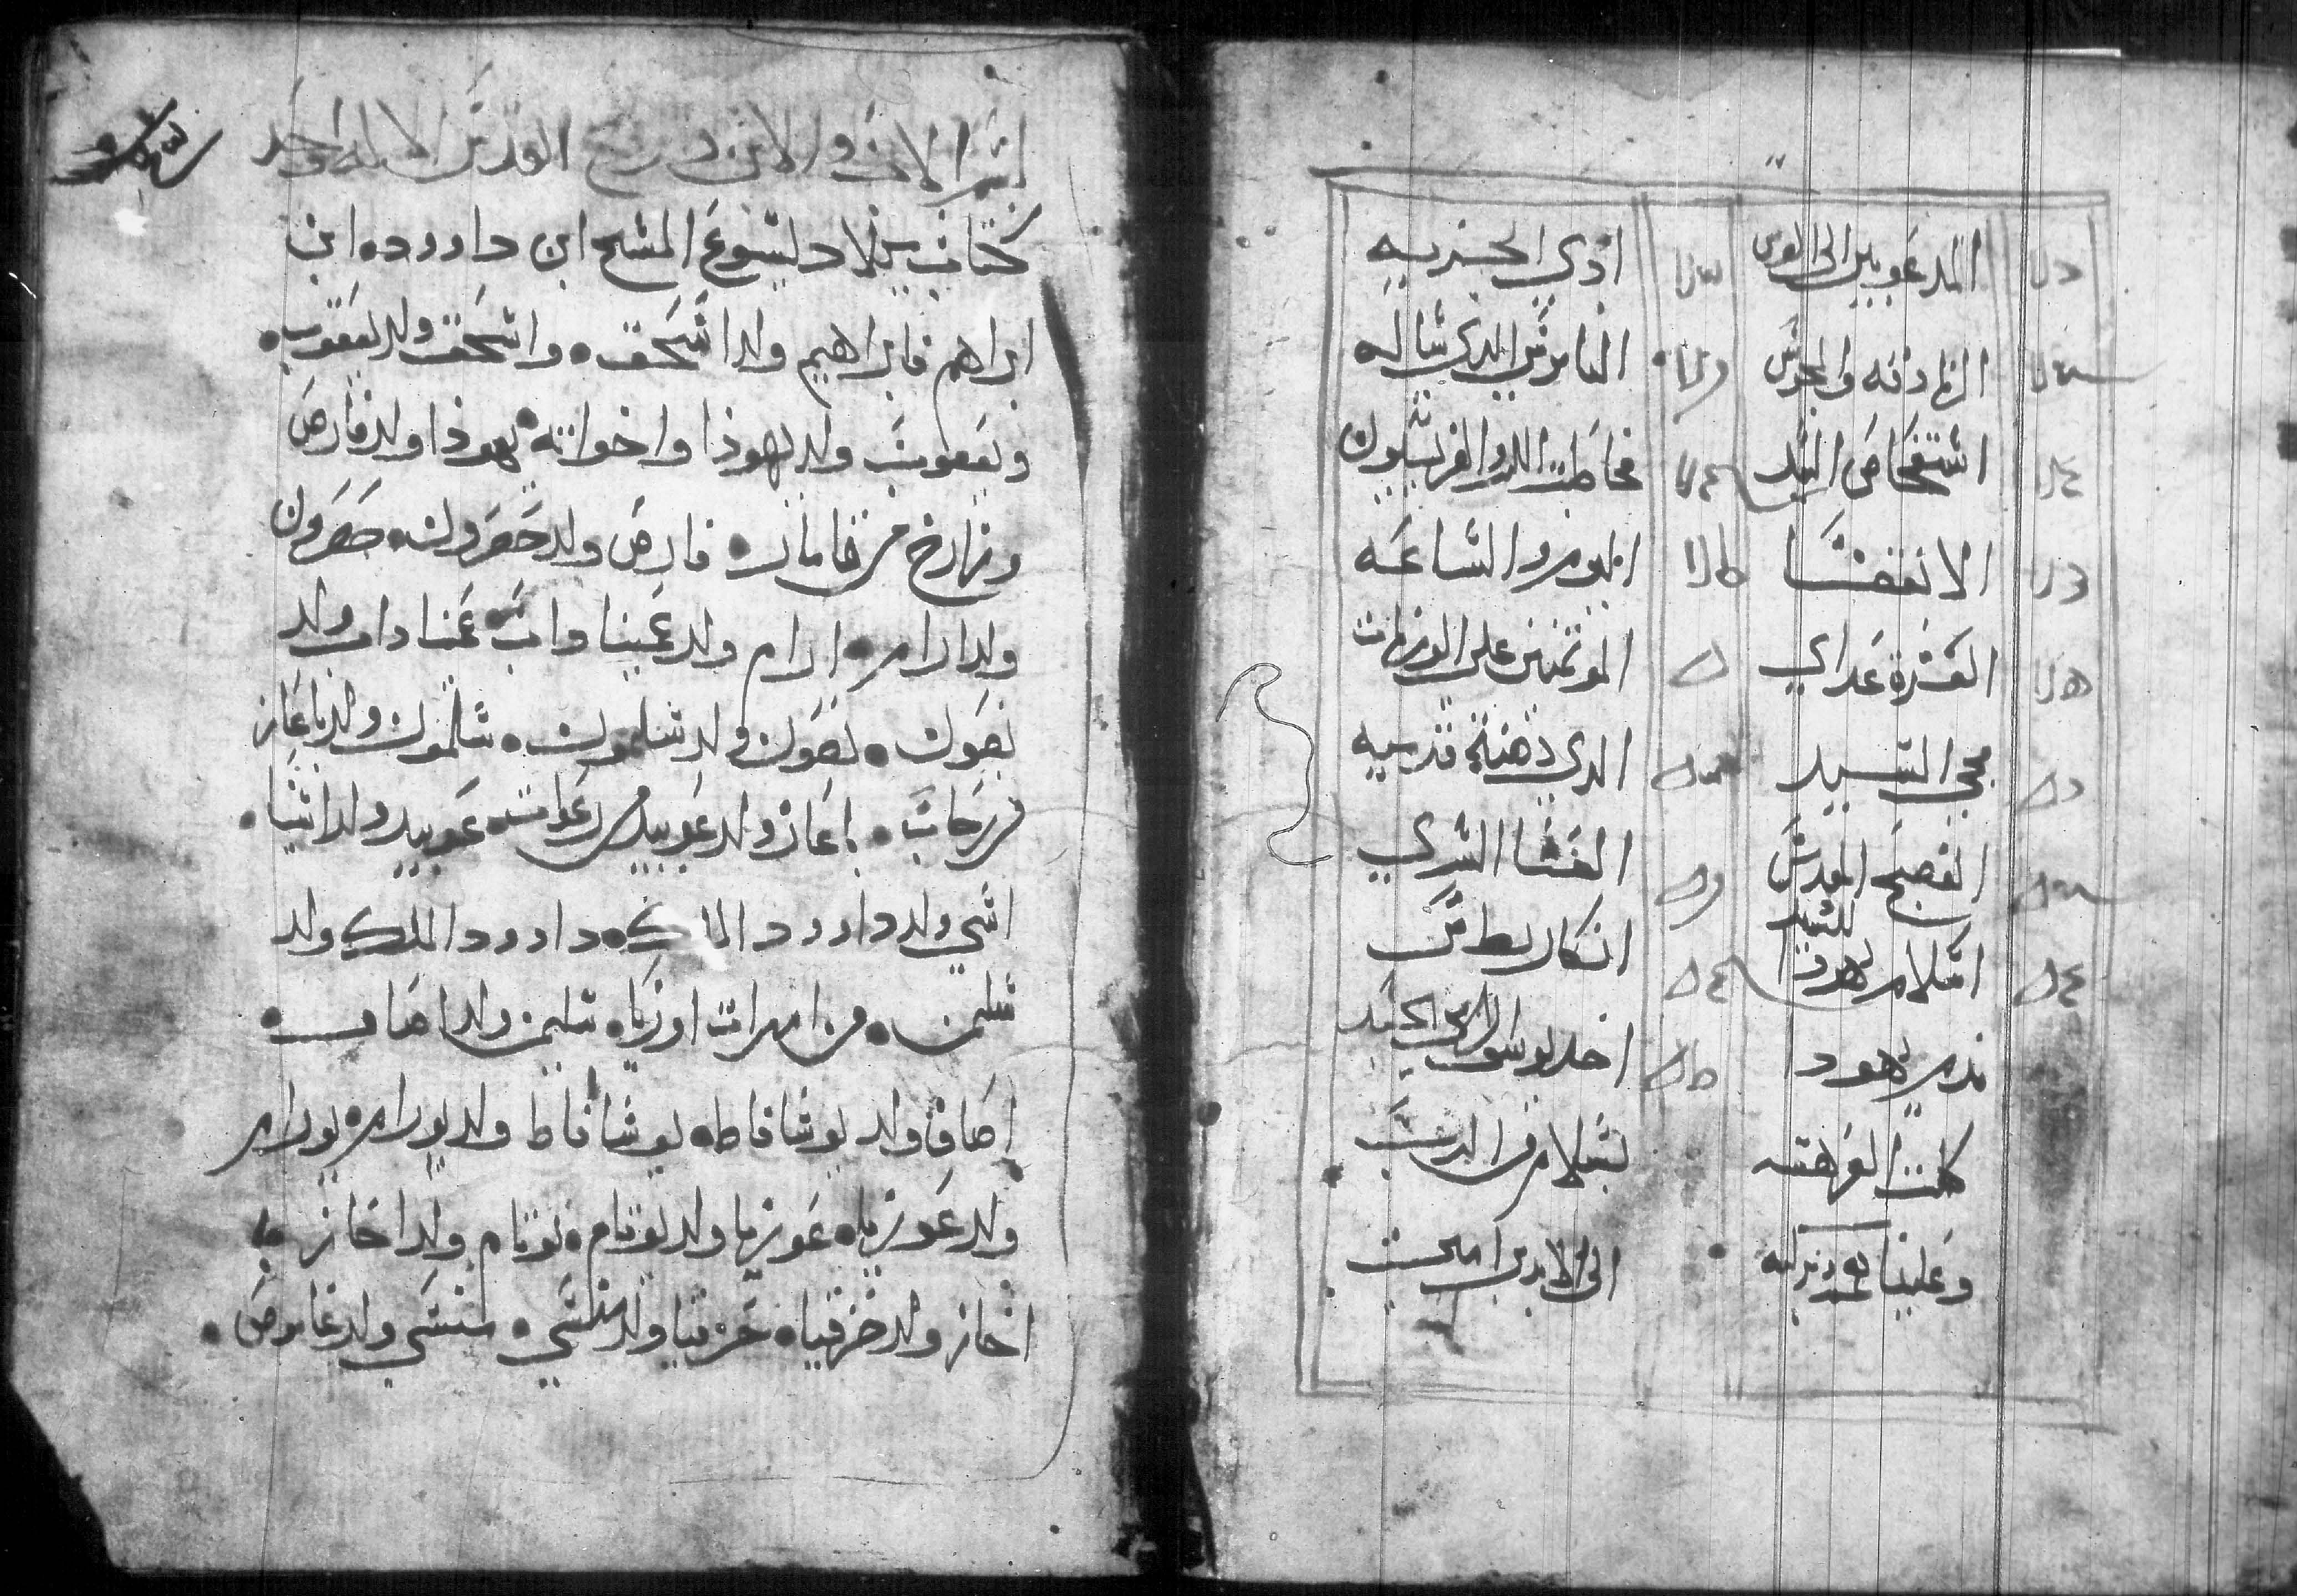 المدعوين الى العرس
ادى الجزيه
الزنادقه والمجوس
الناموسى الدى ساله
استفحاص السيد
مخاطبت الفريسيون
الانقضا
اليوم والساعه
العشرة عدارى
الموتمنين على الوزنات
مجى السيد
الدى دهنة قدميه
الفصح المقدس
للسيد
العشا السرى
اسلام يهودا
انكار بطرس
ندم يهودا
اخد يوسف الجسد
كملت الفهرسه
بسلام من الرب
وعلينا
الى الابد امين
بسم الاب والابن وروح القدس الاله واحد
كتاب ميلاد ليسوع المسيح ابن داوود ابن
ابراهيم فابراهيم ولد اسحق واسحق ولد يعقوب
ويعقوب ولد يهودا واخواته يهودا ولد فارص
وزارح من تامار فارص ولد حصرون حصرون
ولد ارام ارام ولد عميناداب عميناداب ولد
نصون نصون ولد سلمون سلمون ولد باعاز
من رحاب باعاز ولد عوبيد من رعوت عوبيد ولد اشيا
اشى ولد داوود الملك داوود الملك ولد
سليمن من امرات اوريا سليمن ولد
اصاف ولد يوشافاط يوشافاط ولد يورام يورام
ولد عوزيا عوزيا ولد يوتام يوتام ولد احاز
احاز ولد حزقيا حزقيا ولد منسى منسى ولد عاموص